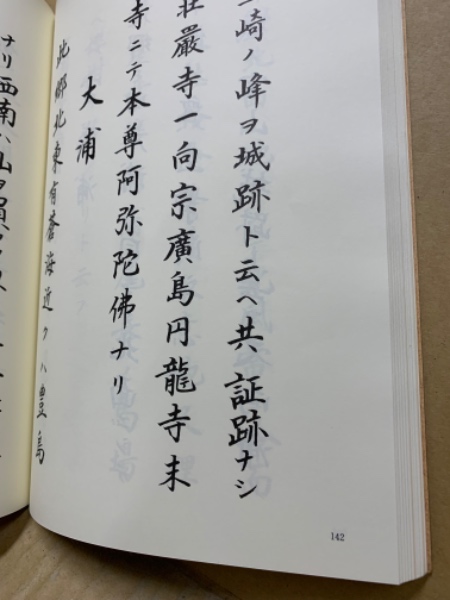 崎ノ峰ヲ城跡ト云ヘ共証跡ナシ
荘厳寺一向宗廣島円龍寺末
寺ニテ本尊阿弥陀佛ナリ
大浦
此郷北東有蒼海近クハ豊島
ナリ西南ハ山
142